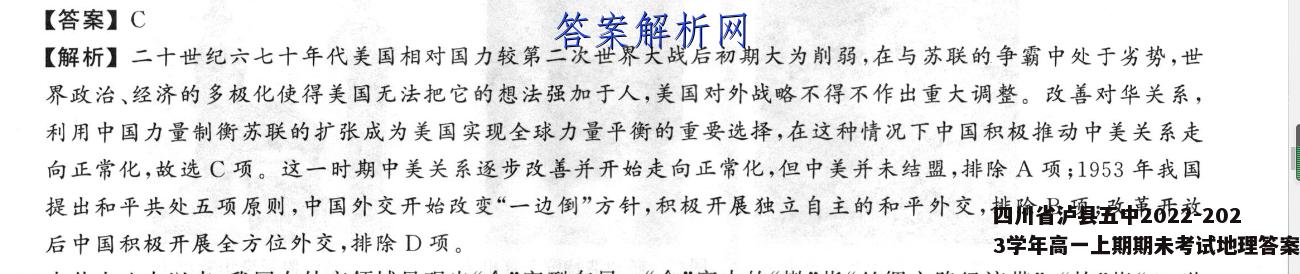 【答案】C
答案解析网
【解析】二十世纪六七十年代美国相对国力较第二次世界大战后初期大为削弱,在与苏联的争霸中处于劣势,世
界政治、经济的多极化使得美国无法把它的想法强加于人,美国对外战略不得不作出重大调整。改善对华关系,
利用中国力量制衡苏联的扩张成为美国实现全球力量平衡的重要选择,在这种情况下中国积极推动中美关系走
向正常化,故选C项。这一时期中美关系逐步改善并开始走向正常化,但中美并未结盟,排除A项;1953年我国
提出和平共处五项原则,中国外交开始改变“一边倒”方针,积极开展独立自主的和平外交,排除B项;改革开放
后中国积极开展全方位外交,排除D项。
四川省泸县五中2022-202
3学年高一上期期未考试地理答案